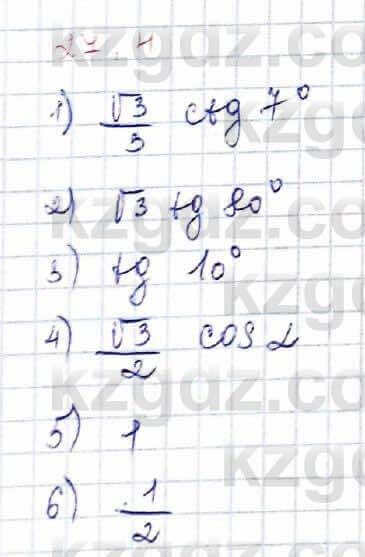 27.4
1) √3/3 ctg 7°
2) √3 tg 80°
3) tg 10°
4) √3/2 cos α
5) 1
6) 1/2
kzgdz.com